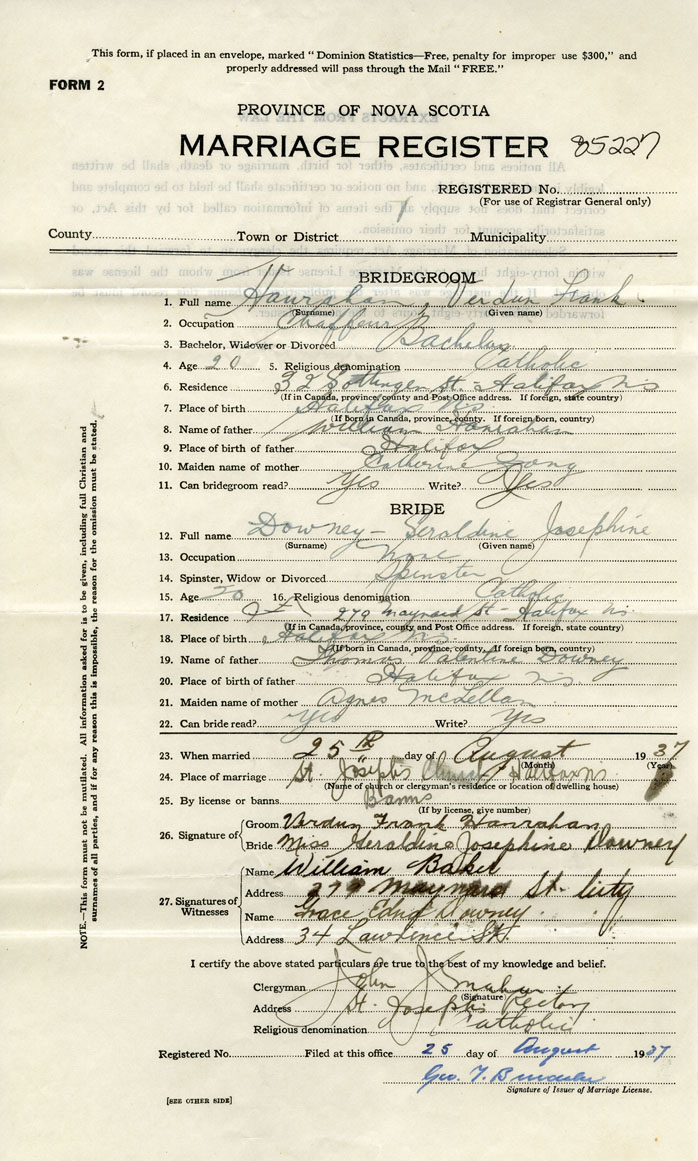 This form, if placed in an envelope, marked "Dominion Statistics—Free, penalty for improper use $300," and
properly addressed will pass through the Mail "FREE."
FORM 2
PROVINCE OF NOVA SCOTIA
MARRIAGE REGISTER 85227
REGISTERED No.
(For use of Registrar General only)
County Town or District Municipality
BRIDEGROOM
1. Full name Hanrahan, Verdun Frank
(Surname) (Given name)
2. Occupation Chaffeur
3. Bachelor, Widower or Divorced Bachelor
4. Age 20 5. Religious denomination Catholic
6. Residence 32 Gottingen St - Halifax NS
(If in Canada, province, county and Post Office address. If foreign, state country)
7. Place of birth Halifax NS
(If born in Canada, province, county. If foreign born, country)
8. Name of father William Hanrahan
9. Place of father Halifax
10. Maiden name of mother Catherine
11. Can bridegroom read? Yes Write? Yes
BRIDE
12. Full name Downey - Geraldine Josephine
(Surname) (Given name)
13. Occupation None
14. Spinster, Widow or Divorced Spinster
15. Age 20 16. Religious denomination Catholic
17. Residence 270 Maynard St - Halifax NS.
(If in Canada, province, county and Post Office address. If foreign, state country)
18. Place of birth Halifax NS
(If born in Canada, province, county. If foreign born, country)
19. Name of father Thomas Valentine Downey
20. Place of birth of father Halifax NS
21. Maiden name of mother Agnes McLellan
22. Can bride read? Yes Write? Yes
23. When married 25th day of August 1937
(Month) (Year)
24. Place of marriage St. Joseph's Church Halifax NS
(Name of church or clergyman's residence or location of dwelling house)
25. By license or banns Banns
(If by license, give number)
26. Signature of Groom Verdun Frank Hanrahan
Bride Miss Geraldine Josephine Downey
27. Signatures of Witnesses Name William Baker
Address Maynard St - City
Name Grace Edna Downey.
Address 34 Lawrence St.
I certify the above stated particulars are true to the best of my knowledge and belief.
Clergyman John J.
(Signature)
Address St. Joseph's Rectory
Religious denomination Catholic
Registered No. Filed at this office 25 day of August 1937
Geo. T.
Signature of Issuer of Marriage License.
[SEE OTHER SIDE]
NOTE.—This form must not be mutilated. All information asked for is to be given, including full Christian and
surnames of all parties, and if for any reason this is impossible, the reason for the omission must be stated.